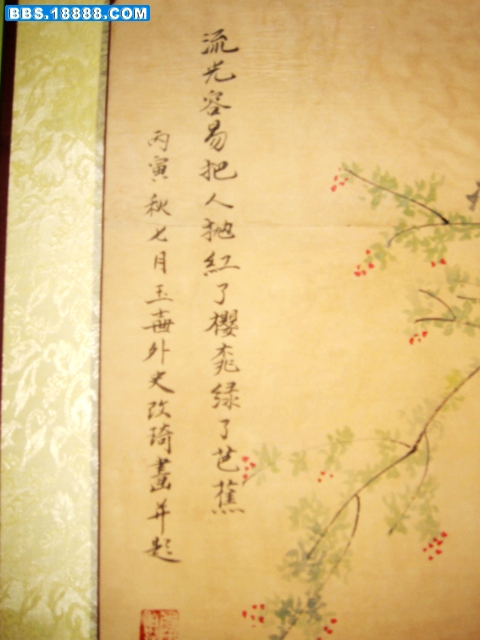 BBS.18888.COM
流光容易把人抛紅了櫻桃绿了芭蕉
丙寅秋七月玉壶外史改琦畫并題